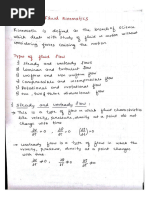 Fluid Kinematics
Kinematic is defined as the branch of science
which deal with study of fluid in motion without
considering forces causing the motion
Type of fluid flow
1 Steady and unsteady flow
2 Laminar and turbulent flow
3 Uniform and non uniform flow
4 Compressible and incompressible flow
5 Rotational and irrotational flow
6 One, two, three dimensional flow
1 Steady and unsteady flow :
→ This is a type of flow in which fluid characteristics
like velocity, pressure, density at a point do not
change with time
→ Unsteady flow is a type of flow in which the
velocity, pressure, density at a point changes
with